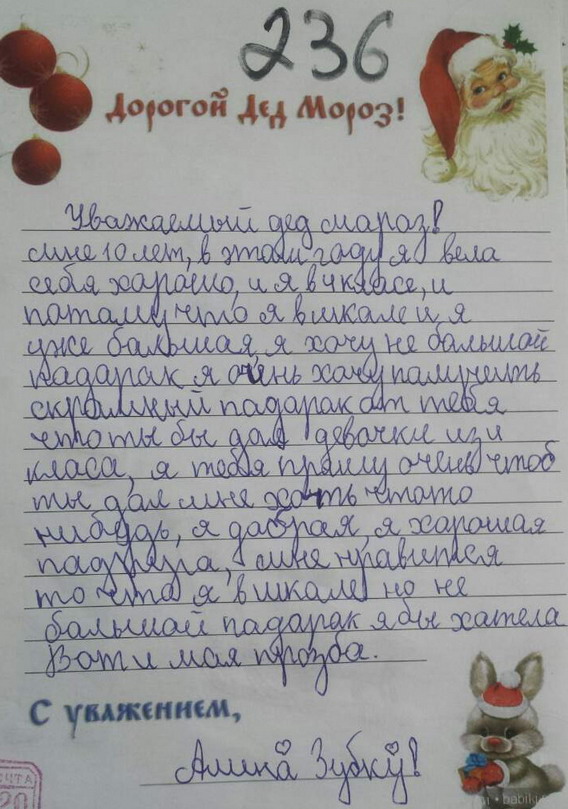 236
Дорогой Дед Мороз!
Уважаемый дед мараз!
мне 10 лет, в этом гаду я вела
себя харашо, и я в 4 класе, и
патаму что я в шкале и я
уже балшая, я хочу не балшой
падарак я очинь хачу палучить
скромный падарак от тебя
что ты бы дал девачки из 4
класа, я тебя прашу очень чтоб
ты дал мне хоть чтото
нибудь, я добрая, я харошая
падруга, мне нравится
то что я в шкале но не
балшой падарак я бы хатела
Вот и мая прозба.
С уважением,
Алина Зубку!
ЧТА
20
babiki